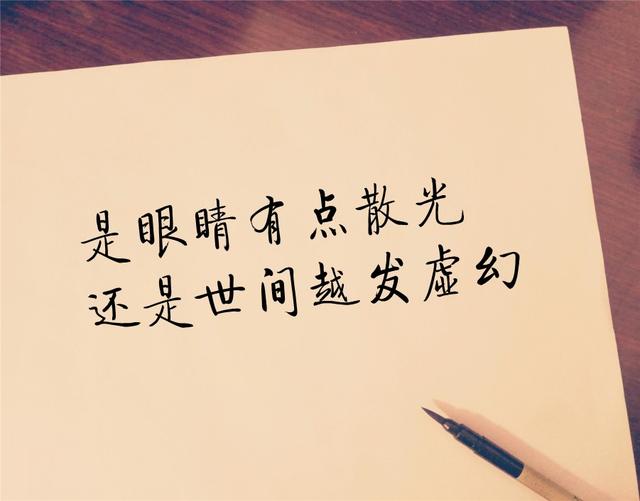 是眼睛有点散光
还是世间越发虚幻